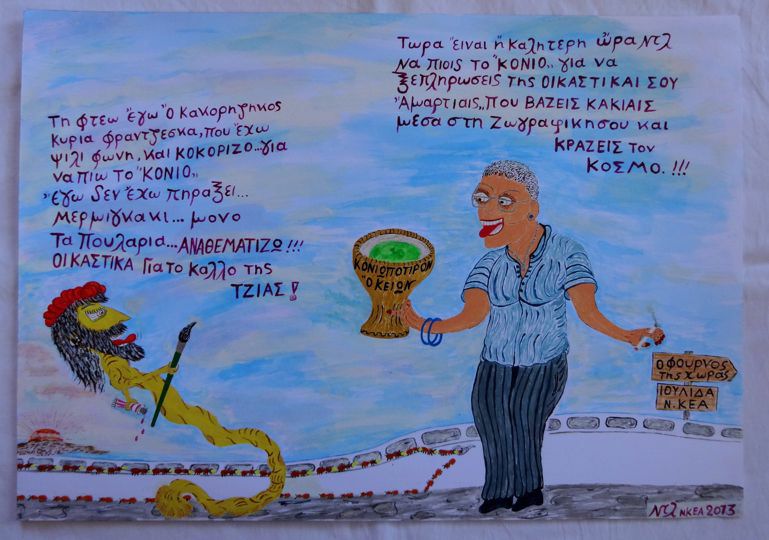 Τη φτεω "έγω "Ο κακορηζηκος
κυρια φραντζεσκα, που "έχω
ψιλι φωνη, και ΚΟΚΟΡΙΖΟ... για
να πιω το "ΚΟΝΙΟ,,
"έγω δεν "έχω πηραξει...
μερμιγκακι... μονο
Τα πουλαρια... ΑΝΑΘΕΜΑΤΙΖΩ!!!
ΟΙΚΑΣΤΙΚΑ Για το καλλο της
ΤΖΙΑΣ!
Τωρα "ειναι ή καλητερη ώρα Ντλ
να πιοις το "ΚΟΝΙΟ,, για να
ξεπληρωσεις της ΟΙΚΑΣΤΙΚΑΙ ΣΟΥ
'Αμαρτιαις,, που ΒΑΖΕΙΣ ΚΑΚΙΑΙΣ
μεσα στη Ζωγραφικησου και
ΚΡΑΖΕΙΣ τον
ΚΟΣΜΟ.!!!
ΚΟΝΙΩΠΟΤΙΡΟΝ
"Ο ΚΕΙΩΝ"
Ο ΦΟΥΡΝΟΣ
της χωρας
ΙΟΥΛΙΔΑ
Ν. ΚΕΑ
Ντλ Ν ΚΕΑ 2013